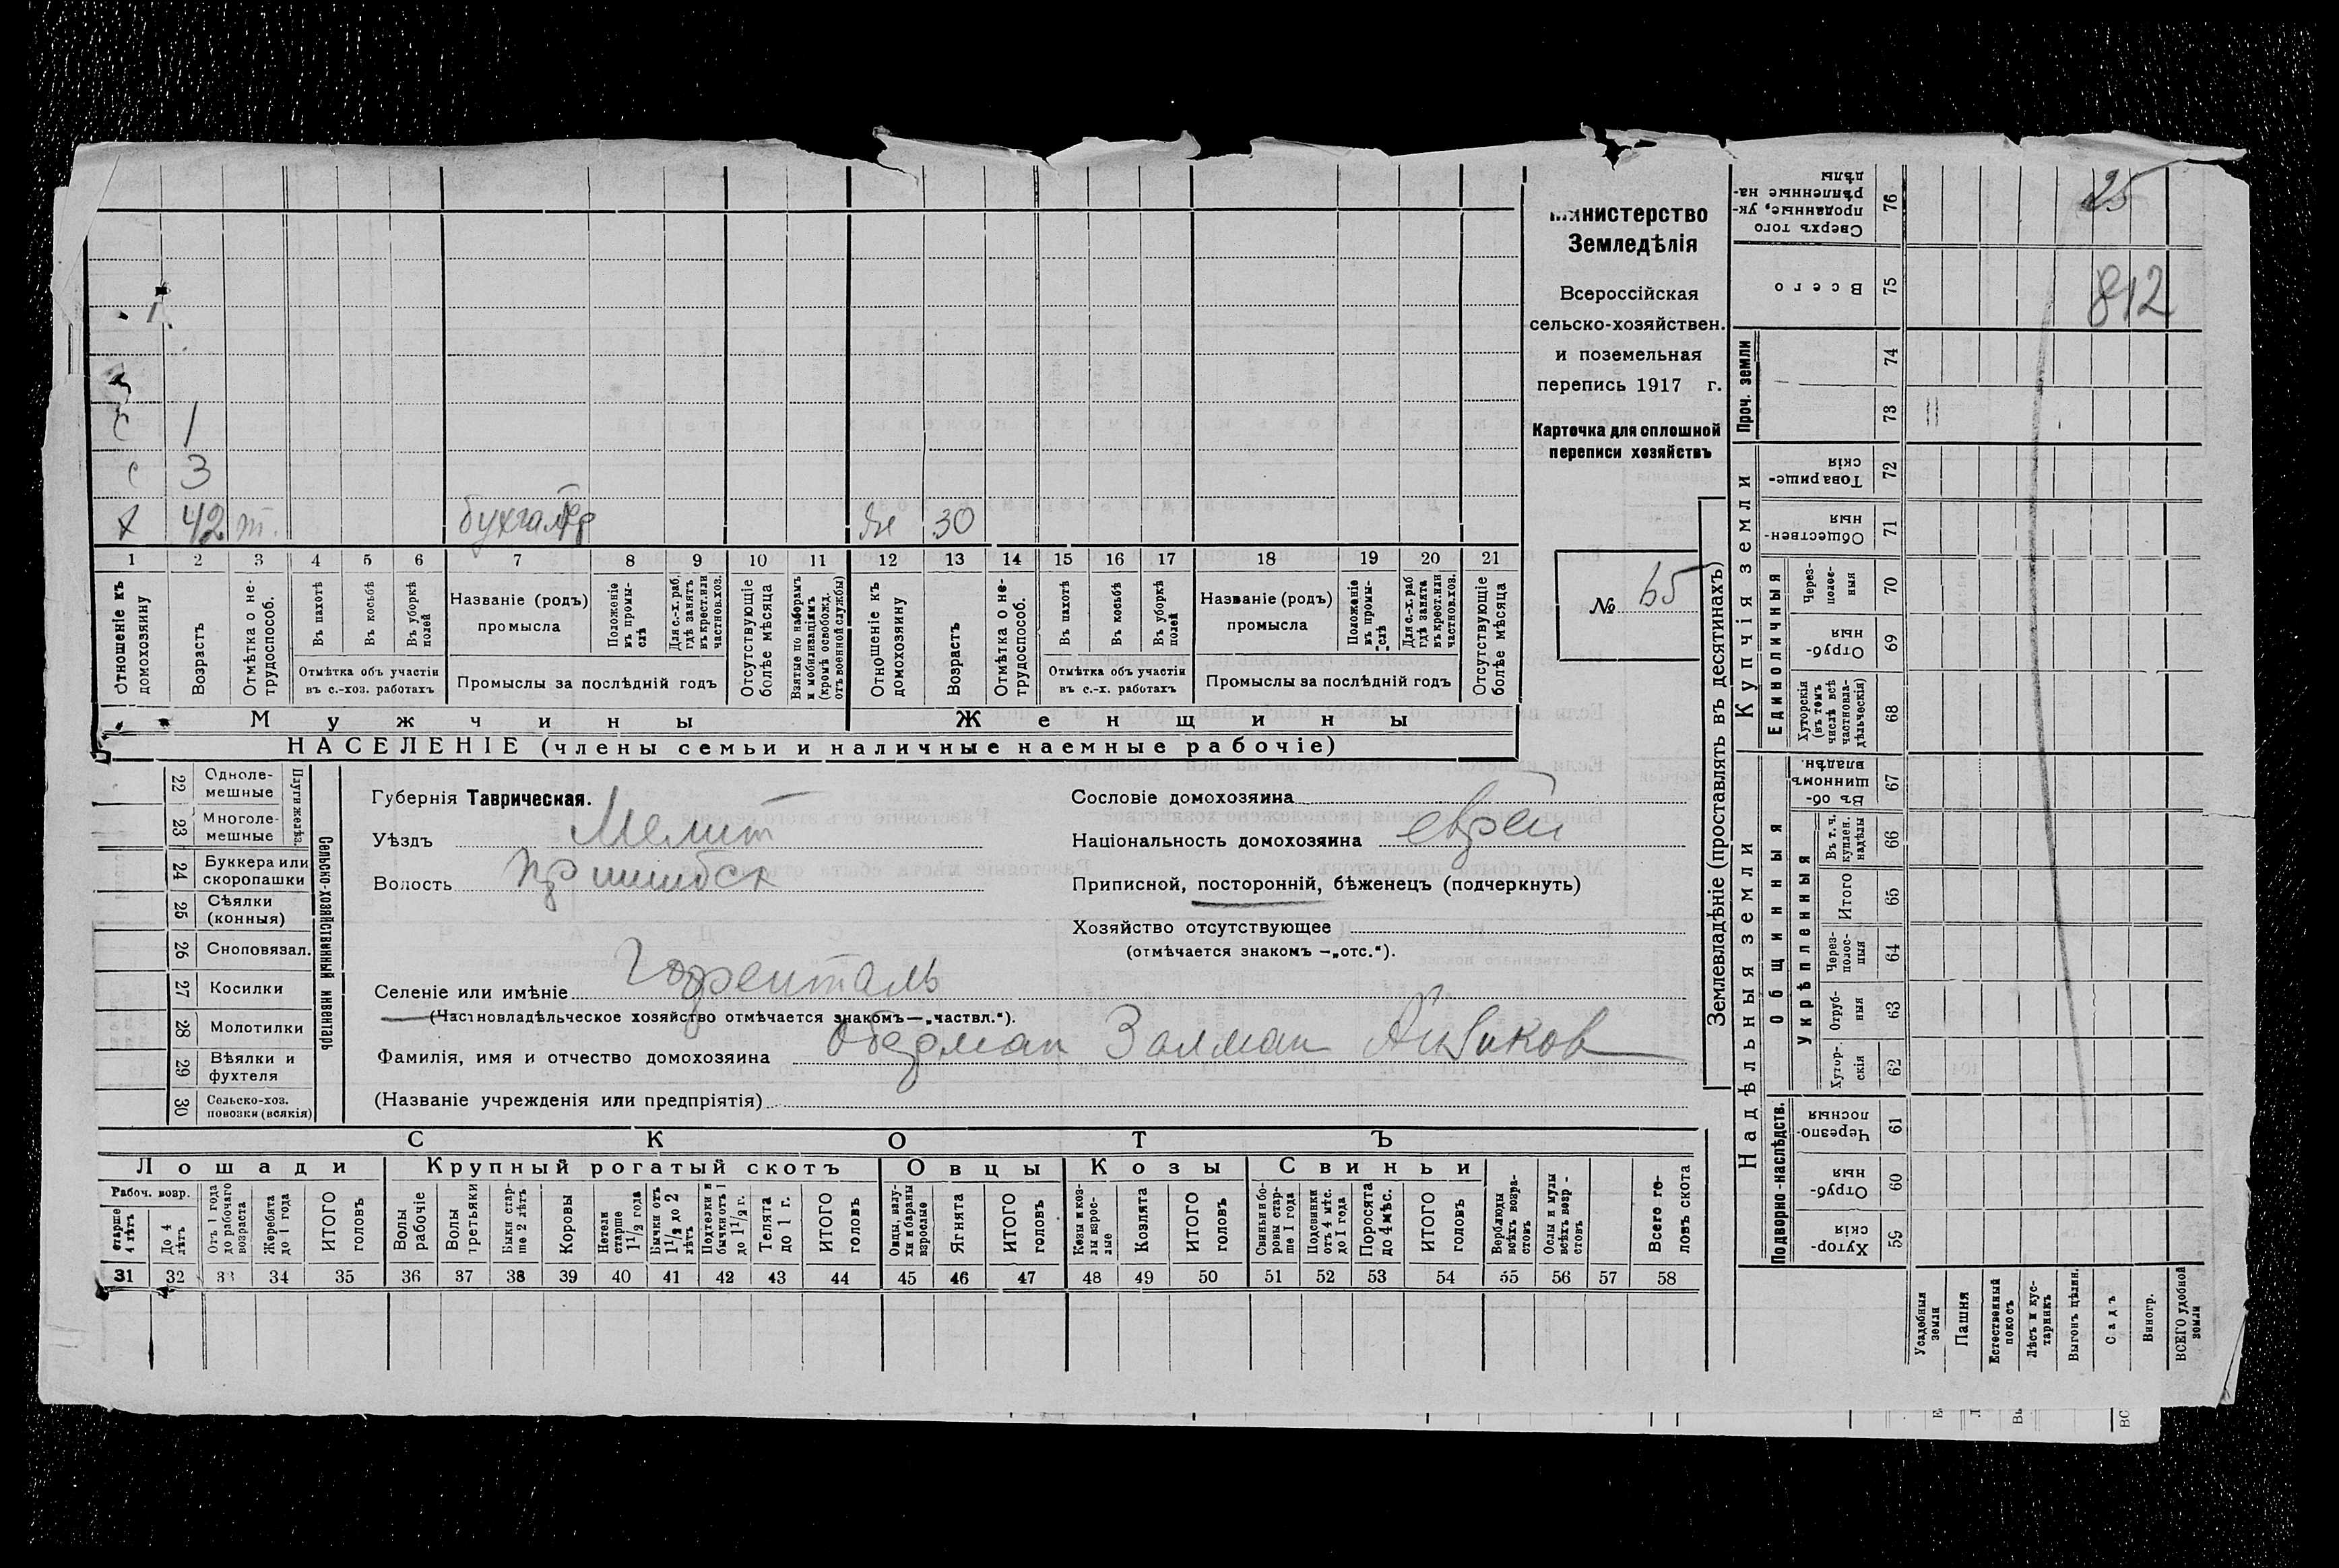 Министерство
Земледѣлія
Всероссійская
сельско-хозяйствен.
и поземельная
перепись 1917 г.
Карточка для сплошной
переписи хозяйствъ
№ 65
с 1
с 3
х 42 т. бухгалтер же 30
1 2 3 4 5 6 7 8 9 10 11 12 13 14 15 16 17 18 19 20 21
Отношеніе къ домохозяину
Возрастъ
Отмѣтка о не-трудоспособ.
Въ пахотѣ
Въ косьбѣ
Въ уборкѣ полей
Отмѣтка объ участіи
въ с.-хоз. работахъ
Названіе (родъ)
промысла
Положеніе въ промы-слѣ
Для с.-х. раб. гдѣ занятъ въ крест. или частнов. хоз.
Промыслы за послѣдній годъ
Отсутствующіе болѣе мѣсяца
Взятые по наборамъ и мобилизаціямъ (кромѣ освобожд. отъ военной службы)
Отношеніе къ домохозяину
Возрастъ
Отмѣтка о не-трудоспособ.
Въ пахотѣ
Въ косьбѣ
Въ уборкѣ полей
Отмѣтка объ участіи
въ с.-х. работахъ
Названіе (родъ)
промысла
Положеніе въ промы-слѣ
Для с.-х. раб гдѣ занята въ крест. или частнов. хоз.
Промыслы за послѣдній годъ
Отсутствующіе болѣе мѣсяца
Мужчины Женщины
НАСЕЛЕНІЕ (члены семьи и наличные наемные рабочіе)
22 Одноле-мешные
23 Многоле-мешные
Плуги желѣз.
24 Буккера или скоропашки
25 Сѣялки (конныя)
26 Сноповязал.
27 Косилки
28 Молотилки
29 Вѣялки и фухтеля
30 Сельско-хоз. повозки (всякія)
Сельско-хозяйственный инвентарь
Губернія Таврическая.
Уѣздъ Мелит
Волость Пришибск
Селеніе или имѣніе Гофенталь
(Частновладѣльческое хозяйство отмѣчается знакомъ—„частвл.“).
Фамилія, имя и отчество домохозяина Оберман Залман
(Названіе учрежденія или предпріятія)
Сословіе домохозяина
Національность домохозяина еврей
Приписной, посторонній, бѣженецъ (подчеркнуть)
Хозяйство отсутствующее
(отмѣчается знакомъ —„отс.“).
СКОТЪ
Лошади Крупный рогатый скотъ Овцы Козы Свиньи
Рабоч. возр.
старше 4 лѣтъ
До 4 лѣтъ
Отъ 1 года до рабочаго возраста
Жеребята до 1 года
ИТОГО головъ
Волы рабочіе
Волы третьяки
Быки стар-ше 2 лѣтъ
Коровы
Нетели старше 1 1/2 года
Бычки отъ 1 1/2 до 2 лѣтъ
Подтелки и бычки отъ 1 до 1 1/2 г.
Телята до 1 г.
ИТОГО головъ
Овцы, валу-хи и бараны взрослые
Ягнята
ИТОГО головъ
Козы и коз-лы взрос-лые
Козлята
ИТОГО головъ
Свиньи и бо-ровы стар-ше 1 года
Подсвинки отъ 4 мѣс. до 1 года
Поросята до 4 мѣс.
ИТОГО головъ
Верблюды всѣхъ возра-стовъ
Ослы и мулы всѣхъ возр-стовъ
Всего го-ловъ скота
31 32 33 34 35 36 37 38 39 40 41 42 43 44 45 46 47 48 49 50 51 52 53 54 55 56 57 58
Землевладѣніе (проставлять въ десятинахъ)
Сверхъ того проданные, ук-рѣпленные на-дѣлы 76 25
Всего 75 812
Проч. земли 74
73
Купчія земли
Товарище-скія 72
Обществен-ныя 71
Единоличныя
Через-полос-ныя 70
Отруб-ныя 69
Хуторскія (въ томъ числѣ всѣ частновла-дѣльческія) 68
Надѣльныя земли
Общинныя
Въ об-щинномъ владѣн. 67
Укрѣпленныя
Въ т. ч. куплен. надѣлы 66
Итого 65
Через-полос-ныя 64
Отруб-ныя 63
Хутор-скія 62
Подворно-наслѣдств.
Черезпо-лосныя 61
Отруб-ныя 60
Хутор-скія 59
Усадебныя земли
Пашня
Естественный покосъ
Лѣсъ и кус-тарникъ
Выгонъ цѣлин.
Садъ
Виногр.
ВСЕГО удобной земли